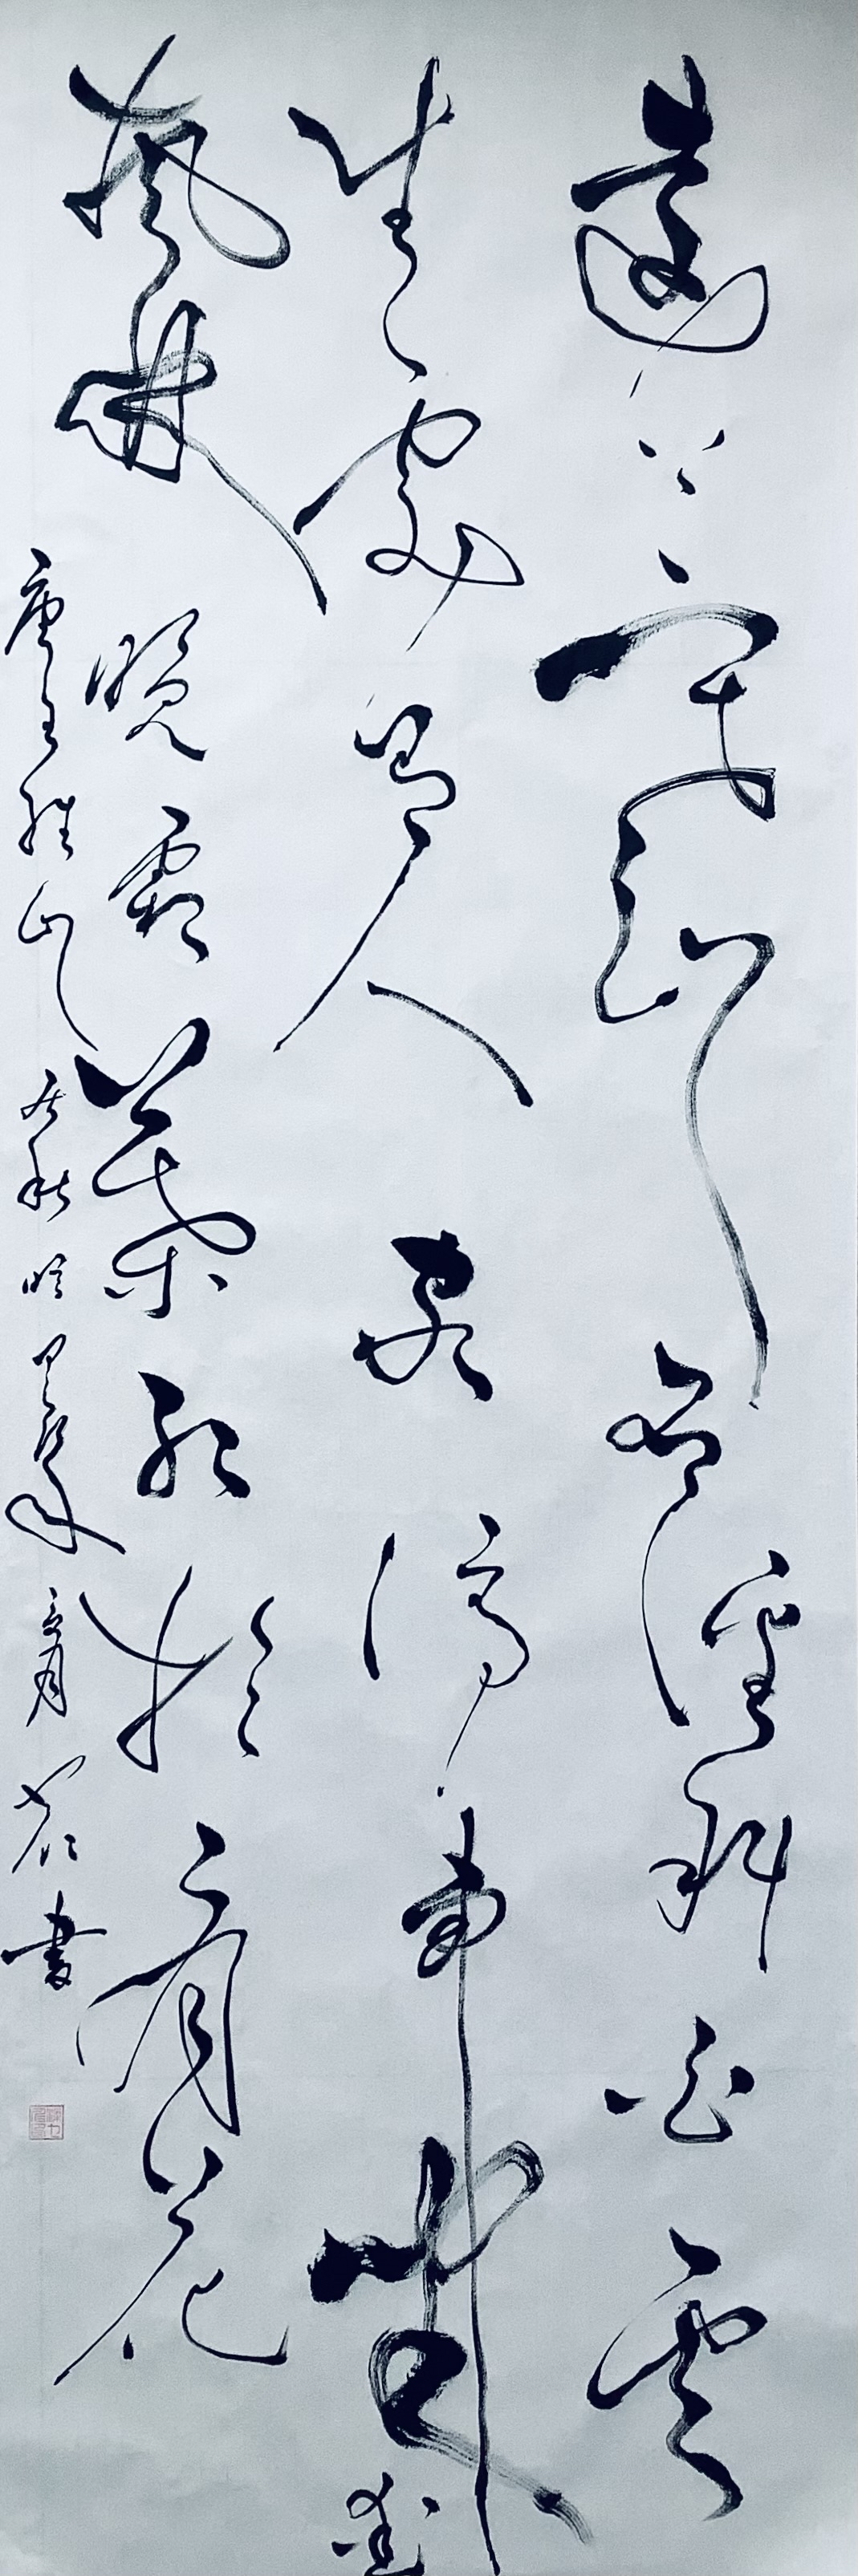 遠上寒山石徑斜白雲
生處人家停車坐愛
楓林晚霜葉紅於二月花
唐王維山居秋暝 書